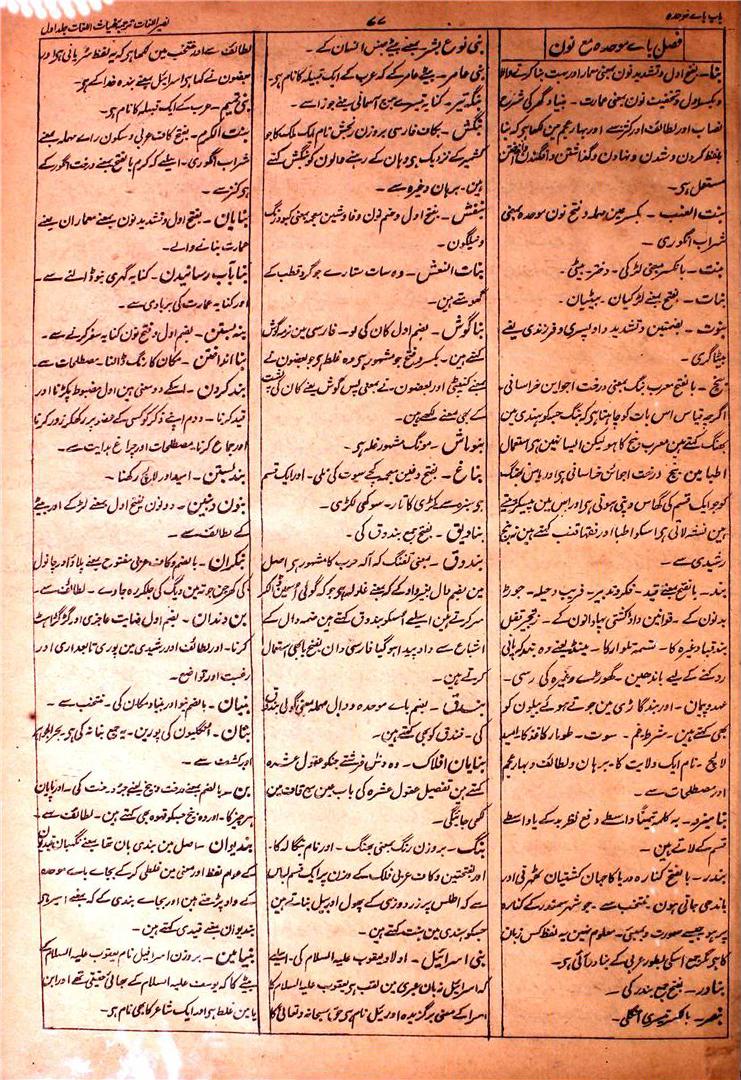 باب بائے موحدہ
۷۷
نصیر اللغات ترجمہ غیاث اللغات جلد اول
فصل بائے موحدہ مع نون
بنا۔ بفتح اول و تشدید نون بمعنی معمار اور بہت بنا کرنے والا
و بکسر اول و تخفیف نون بمعنی عمارت۔ بنیاد گھر کی شرح
نصاب اور لطائف اور کنز سے اور بہار عجم مین لکھا ہو کہ بنا
بلفظ کردن و شدن و نہادن و گذاشتن و افگندن
مستعمل ہو۔
بنت العنب۔ بکسر عین مہملہ و فتح نون موحدہ بمعنی
شراب انگوری۔
بنت۔ بالکسر بمعنی لڑکی۔ دختر۔ بیٹی۔
بنات۔ بفتح بمعنے لڑکیان۔ بیٹیان۔
بنوت۔ بضمتین و تشدید واو پسری و فرزندی یعنے
بیٹا گری۔
بنج۔ بالفتح معرب بنگ بمعنی درخت اجواین خراسانی۔
اگرچہ قیاس اس بات کو چاہتا ہو کہ بنگ جسکو ہندی مین
بھنگ کہتے ہین معرب بنج کا ہو لیکن ایسا نہین ہی استعمال
اطبا مین بنج درخت اجوائن خراسانی ہی اور بھنگ
کو جو ایک قسم کی گھاس ہوتی ہی اور اس مین
ہین نشہ لاتی ہی اسکو اطبا اور فقہا قنب کہتے ہین نہ بنج
رشیدی سے۔
بند۔ بالفتح بمعنے قید۔ فکر و تدبیر۔ فریب و حیلہ۔ جوڑ
بدنون کے۔ قوانین داؤ کشتی پہلوانون کے۔ زنجیر قفل
بند قبا وغیرہ کا۔ تسمہ تلوار کا۔ مینڈ یعنے وہ بند کہ پانی
روکنے کے لیے باندھین۔ گھوڑے وغیرہ کی رسی۔
عہد و پیمان۔ اور بند گاڑی مین جوتے ہوئے بیلون کو
بھی کہتے ہین۔ شرط۔ غم۔ سوت۔ طومار کاغذ کا۔ امید
لالچ۔ نام ایک ولایت کا۔ برہان و لطائف و بہار عجم
اور مصطلحات سے۔
بنامیزد۔ یہ کلمہ تیمناً واسطے دفع نظر بد کے یا واسطے
قسم کے لاتے ہین۔
بندر۔ بالفتح کنارہ دریا کا جہان کشتیان ٹھہرتی اور
باندھی جاتی ہون۔ منتخب سے۔ جو شہر سمندر کے کنارہ
پر ہو جیسے سورت و بمبئی۔ معلوم نہین یہ لفظ کس زبان
کا ہی مگر جمع اسکی بطور عربی کے بنادر آئی ہی۔
بنادر۔ بفتح جمع بندر کی۔
بنصر۔ بالکسر تیسری انگلی۔
بنی نوع بشر۔ بمعنے بیٹے جنس انسان کے۔
بنی عامر۔ بیٹے عامر کے کہ عرب کے ایک قبیلہ کا نام ہی۔
کنایہ تیسرے برج آسمانی یعنے جوزا سے۔
بنگش۔ بکاف فارسی بروزن رنجش نام ایک ملک کا جو
کشمیر کے نزدیک ہی وہان کے رہنے والون کو بنگش کہتے
ہین۔ برہان وغیرہ سے۔
بنفش۔ بفتح اول و ضم نون و فا و شین معجمہ بمعنی کبود رنگ
و نیلگون۔
بنات النعش۔ وہ سات ستارے جو گرد قطب کے
گھومتے ہین۔
بناگوش۔ بضم اول کان کی لو۔ فارسی مین نرمہ گوش
کہتے ہین۔ بکسر و فتح جو مشہور ہی وہ غلط ہی جو بعضون نے
بمعنے کنپٹی اور بعضون نے بمعنی پس گوش یعنے کان کی پشت
کے بھی معنے لکھے ہین۔
بنو ماش۔ مونگ مشہور غلہ ہی۔
بناغ۔ بفتح و غین معجمہ کچے سوت کی نلی۔ اور ایک قسم
ہی سبزہ سے مکڑی کا تار۔ سوکھی لکڑی۔
بنادیق۔ بفتح جمع بندوق کی۔
بندوق۔ بمعنی تفنگ کہ آلہ حرب کا مشہور ہی اصل
مین بضم دال بغیر واو کے بمعنے غلولہ ہی جو کہ گولی اسمین ڈالکر
سر کرتے ہین اسلیے اسکو بندوق کہتے ہین ضمہ دال کے
اشباع سے واو پیدا ہو گیا فارسی دان بفتح با بھی استعمال
کرتے ہین۔
بندق۔ بضم بائے موحدہ و دال مہملہ بمعنی گولی بندوق
کی۔ فندق کو بھی کہتے ہین۔
بنایان افلاک۔ وہ دس فرشتے جنکو عقول عشرہ
کہتے ہین تفصیل عقول عشرہ کی باب عین مع قاف مین
لکھی جائیگی۔
بنگ۔ بروزن رنگ بمعنی بھنگ۔ اور نام بنگالہ کا۔
اور بفتحتین و کاف عربی فلک کے وزن پر ایک قسم لباس
ہے کہ اطلس پر زردوزی کے پھول اور بیل بناتے ہین
جسکو ہندی مین بنت کہتے ہین۔
بنی اسرائیل۔ اولاد یعقوب علیہ السلام کی۔ اسلیے
کہ اسرائیل زبان عبری مین لقب ہی یعقوب علیہ السلام کا
اسرا کے معنی برگزیدہ اور ئیل نام ہی حق سبحانہ و تعالیٰ کا
لطائف سے اور منتخب مین لکھا ہو کہ یہ لفظ سریانی ہی اور
بعضون نے کہا ہی اسرائیل بمعنے بندہ خدا کے ہی۔
بنی تمیم۔ عرب کے ایک قبیلہ کا نام ہی۔
بنت الکرم۔ بفتح کاف عربی و سکون رائے مہملہ بمعنے
شراب انگوری۔ اسلیے کہ کرم بالفتح بمعنے درخت انگور کے
ہی کنز سے۔
بنایان۔ بفتح اول و تشدید نون بمعنے معماران یعنے
عمارت بنانے والے۔
بنا بآب رسانیدن۔ کنایہ گہری نیو ڈالنے سے۔
اور کنایہ عمارت کی بربادی سے۔
بنہ بستن۔ بضم اول و فتح نون کنایہ سفر کرنے سے۔
بنا انداختن۔ مکان کا رنگ ڈالنا۔ مصطلحات سے۔
بند کردن۔ اسکے دو معنی ہین اول مضبوط پکڑنا اور
قید کرنا۔ دوم اپنے ذکر کو کسی کے عضو پر رکھکر زور کرنا
اور جماع کرنا۔ مصطلحات اور چراغ ہدایت سے۔
بند بستن۔ امید اور لالچ رکھنا۔
بنون و بنین۔ دونون بفتح اول بمعنے لڑکے اور بیٹے
کے لطائف سے۔
بنکران۔ بالضم و کاف عربی مفتوح بمعنے پلاؤ اور چانول
کی کھرچن جو تہ مین دیگ کی جلکر رہ جاوے۔ لطائف سے۔
بن دندان۔ بضم اول نہایت عاجزی اور گڑگڑاہٹ
کرنا۔ اور لطائف اور رشیدی مین پوری تابعداری اور
رغبت اور تواضع۔
بنیان۔ بالضم نیو اور بنیاد مکان کی۔ منتخب سے۔
بنان۔ انگلیون کی پورین۔ یہ جمع بنانہ کی ہی۔ بحر الجواہر
اور کشف سے۔
بن۔ بالضم بمعنے درخت و بیخ یعنے جڑ درخت کی۔ اور پایان
ہر چیز کا۔ اور وہ بیج جسکو قہوہ بھی کہتے ہین۔ لطائف سے۔
بندیوان۔ اصل مین بندی بان تھا بمعنے نگہبان قیدیون
کے عوام لفظ اور معنی مین غلطی کر کے بجائے بائے موحدہ
کے واو پڑھتے ہین اور بجائے بندی کے کہ بمعنے اسیر ہی
بندیوان بمعنے قیدی کہتے ہین۔
بنیامین۔ بروزن اسرافیل نام یعقوب علیہ السلام کے
بیٹے کا کہ یوسف علیہ السلام کے بھائی حقیقی تھے اور ابن
یامین غلط ہی اور ایک شاعر کا بھی نام ہی۔